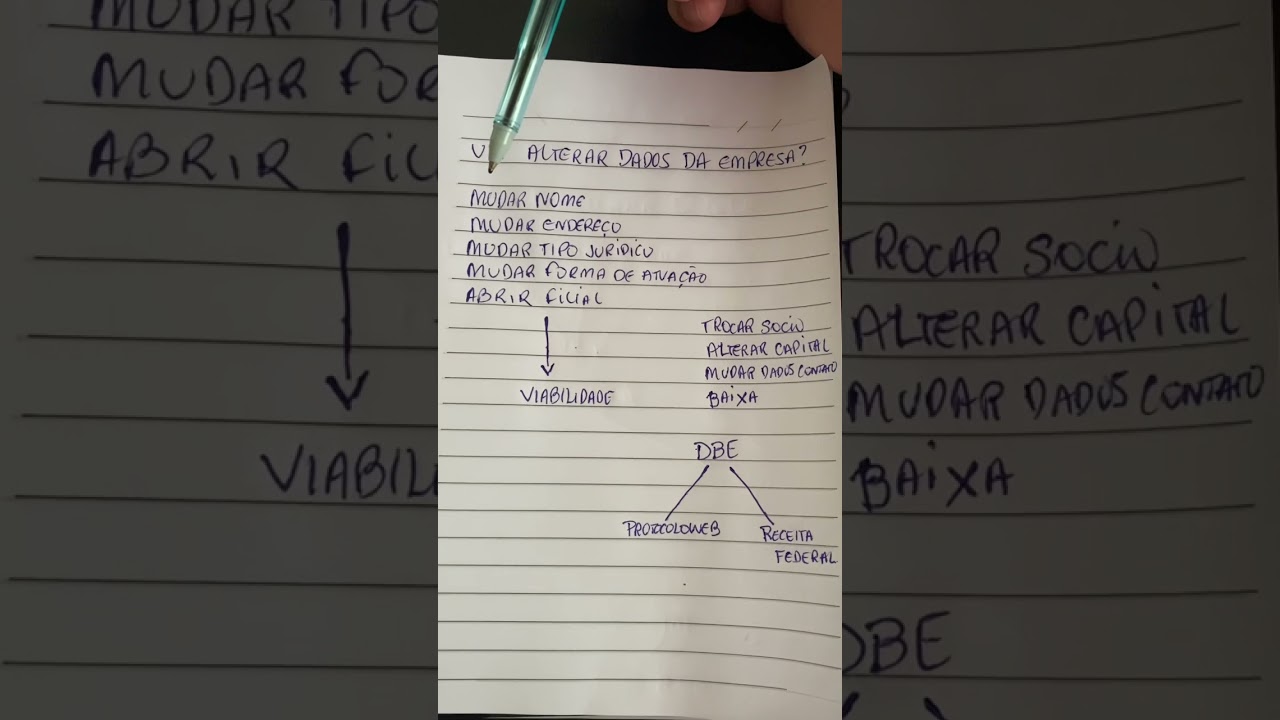 ALTERAR DADOS DA EMPRESA?
MUDAR NOME
MUDAR ENDEREÇO
MUDAR TIPO JURÍDICO
MUDAR FORMA DE ATUAÇÃO
ABRIR FILIAL
VIABILIDADE
TROCAR SOCIO
ALTERAR CAPITAL
MUDAR DADOS CONTATO
BAIXA
DBE
PROTOCOLOWEB
RECEITA
FEDERAL